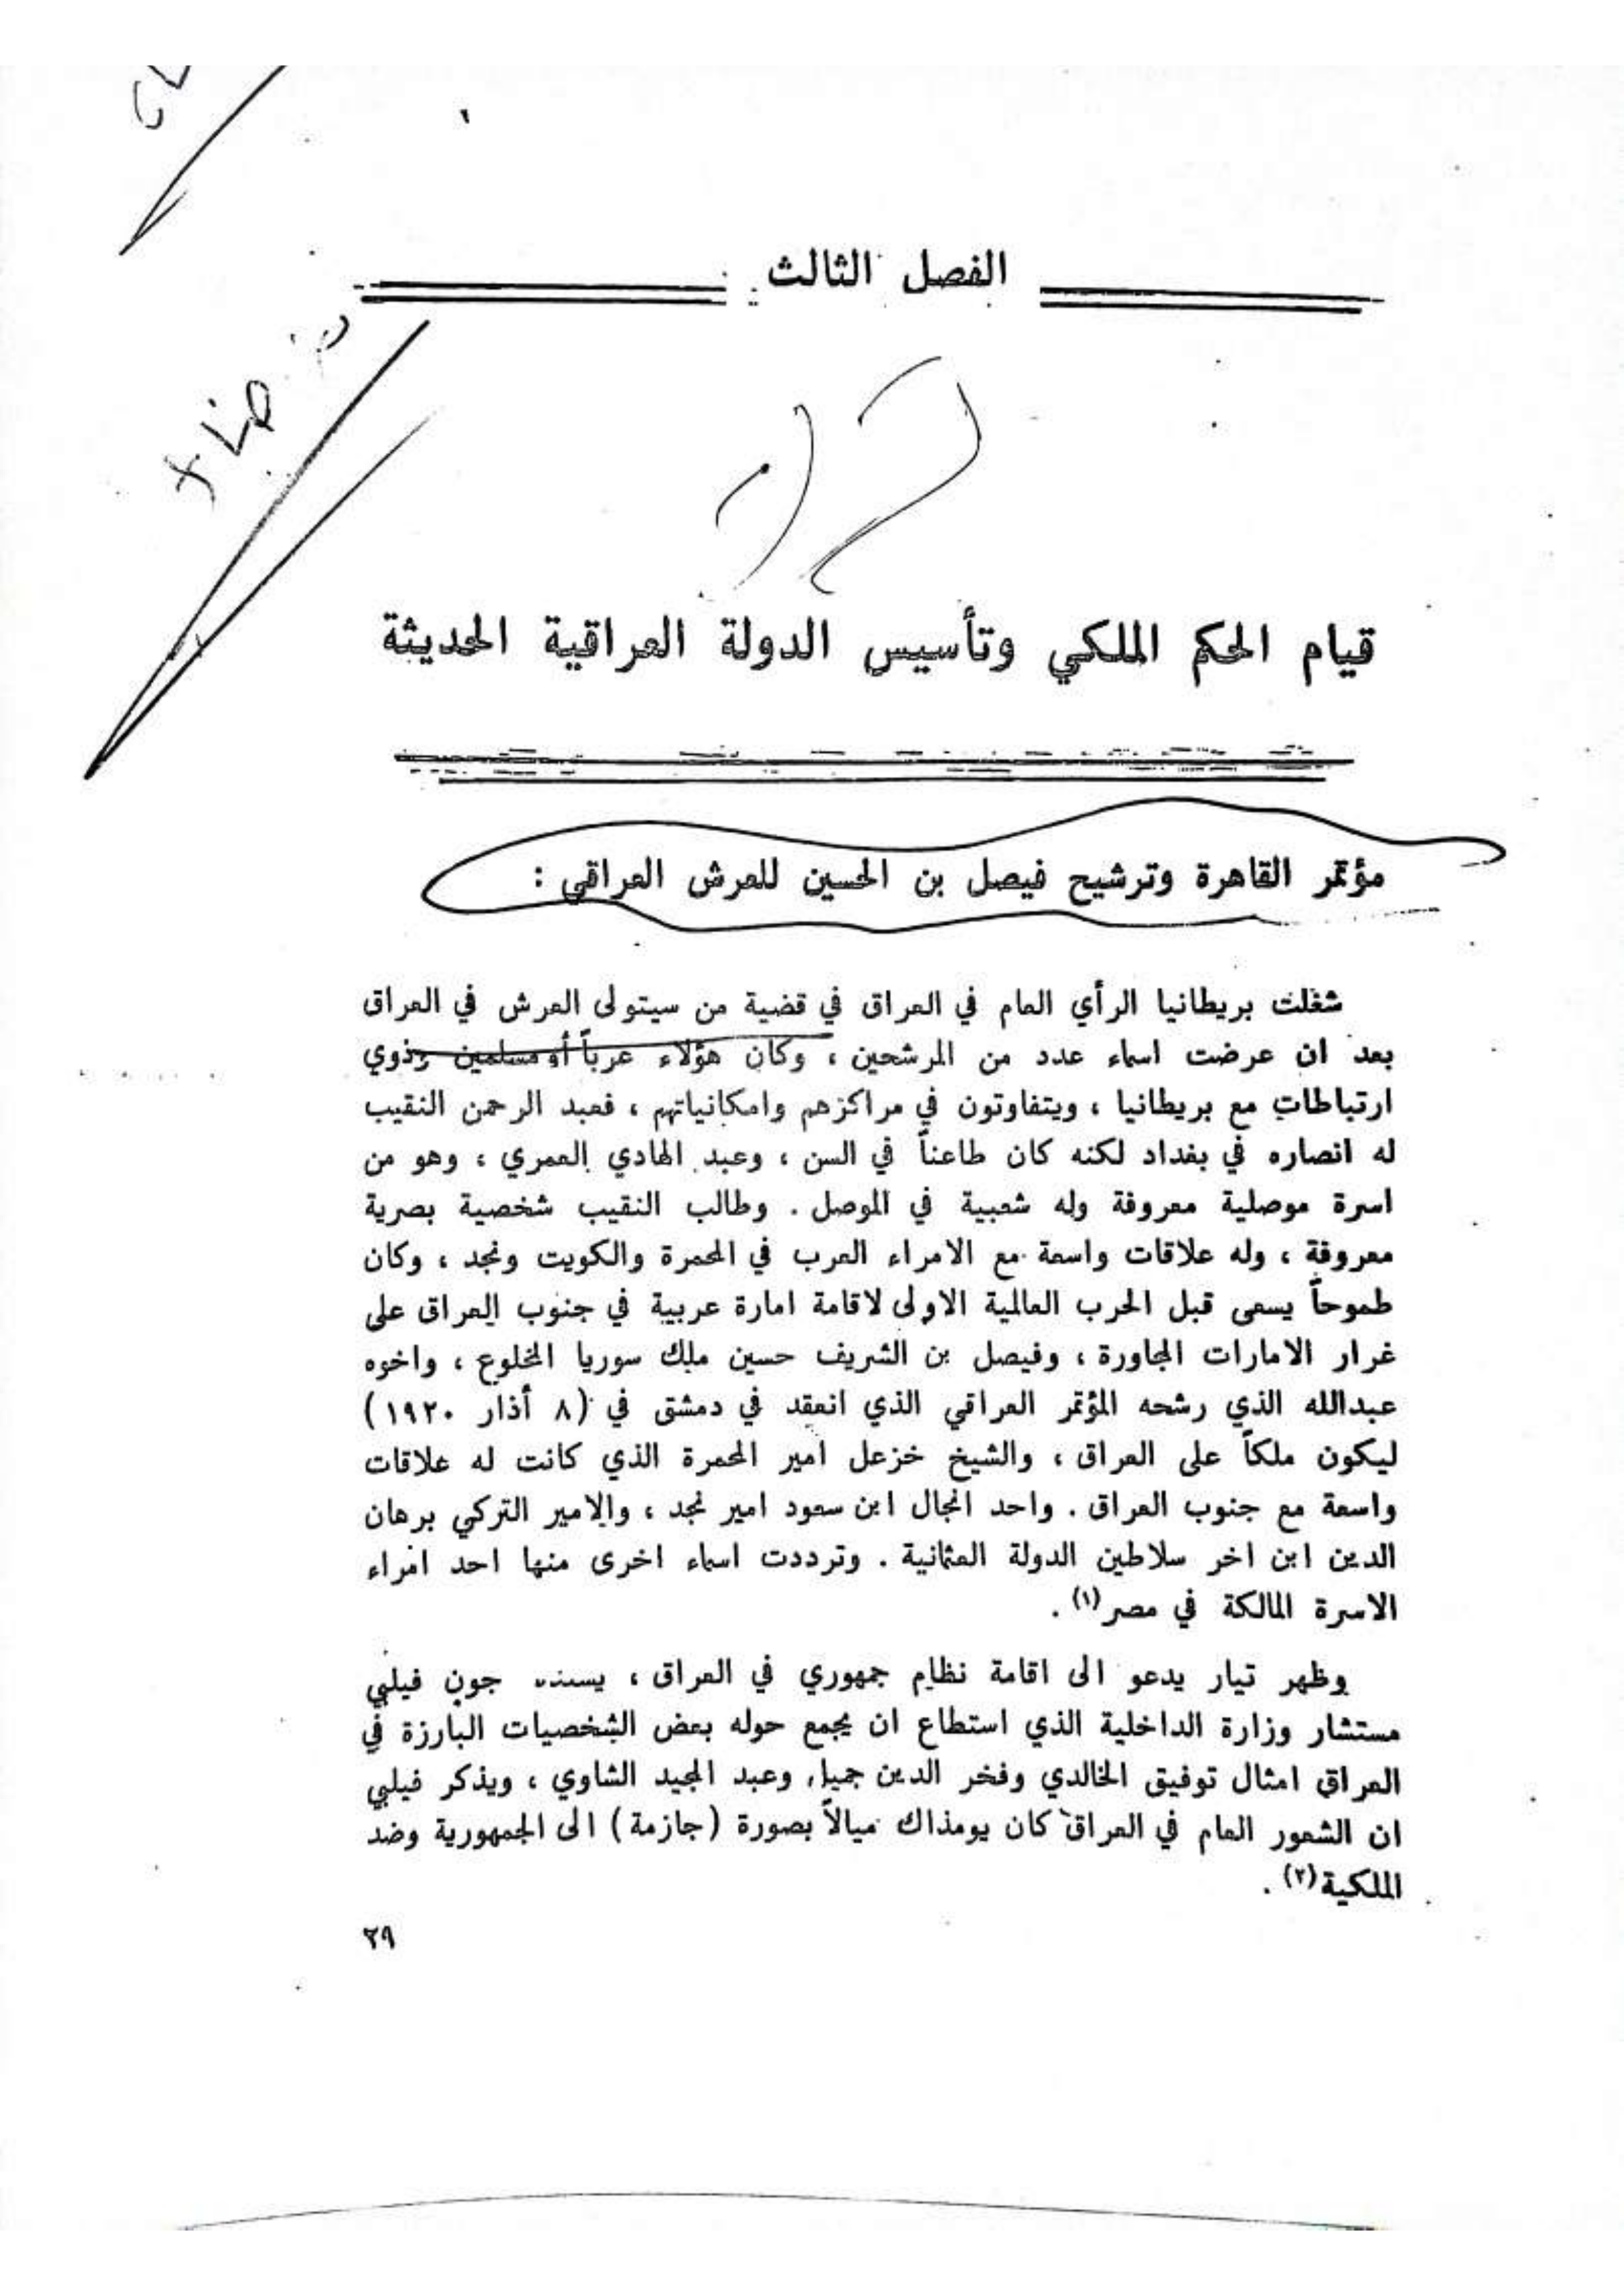 الفصل الثالث
قيام الحكم الملكي وتأسيس الدولة العراقية الحديثة
مؤتمر القاهرة وترشيح فيصل بن الحسين للعرش العراقي :
شغلت بريطانيا الرأي العام في العراق في قضية من سيتولى العرش في العراق
بعد ان عرضت اسماء عدد من المرشحين ، وكان هؤلاء عرباً أو مسلمين وذوي
ارتباطات مع بريطانيا ، ويتفاوتون في مراكزهم وامكانياتهم ، فعبد الرحمن النقيب
له انصاره في بغداد لكنه كان طاعناً في السن ، وعبد الهادي العمري ، وهو من
اسرة موصلية معروفة وله شعبية في الموصل . وطالب النقيب شخصية بصرية
معروفة ، وله علاقات واسعة مع الامراء العرب في المحمرة والكويت ونجد ، وكان
طموحاً يسعى قبل الحرب العالمية الاولى لاقامة امارة عربية في جنوب العراق على
غرار الامارات المجاورة ، وفيصل بن الشريف حسين ملك سوريا المخلوع ، واخوه
عبدالله الذي رشحه المؤتمر العراقي الذي انعقد في دمشق في (٨ أذار ١٩٢٠)
ليكون ملكاً على العراق ، والشيخ خزعل امير المحمرة الذي كانت له علاقات
واسعة مع جنوب العراق . واحد انجال ابن سعود امير نجد ، والامير التركي برهان
الدين ابن اخر سلاطين الدولة العثمانية . وترددت اسماء اخرى منها احد امراء
الاسرة المالكة في مصر(١) .
وظهر تيار يدعو الى اقامة نظام جمهوري في العراق ، يسنده جون فيلبي
مستشار وزارة الداخلية الذي استطاع ان يجمع حوله بعض الشخصيات البارزة في
العراق امثال توفيق الخالدي وفخر الدين جميل وعبد المجيد الشاوي ، ويذكر فيلبي
ان الشعور العام في العراق كان يومذاك ميالاً بصورة (جازمة) الى الجمهورية وضد
الملكية(٢) .
٢٩